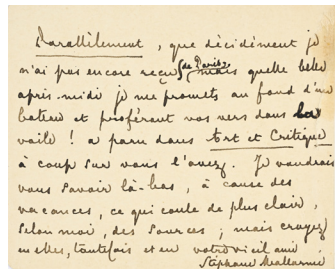 Parallèlement, que décidément je
n'ai pas encore reçu (de Paris) mais quelle belle
après-midi je me promets au fond d'un
bateau et proférant vos vers dans la
voile ! a paru dans Art et Critique
à coup sur vous l'avez. Je voudrais
vous savoir là-bas, à cause des
vacances, ce qui coule de plus clair,
selon moi, des sources ; mais croyez
en elles, toutefois et en votre vieil ami
Stéphane Mallarmé